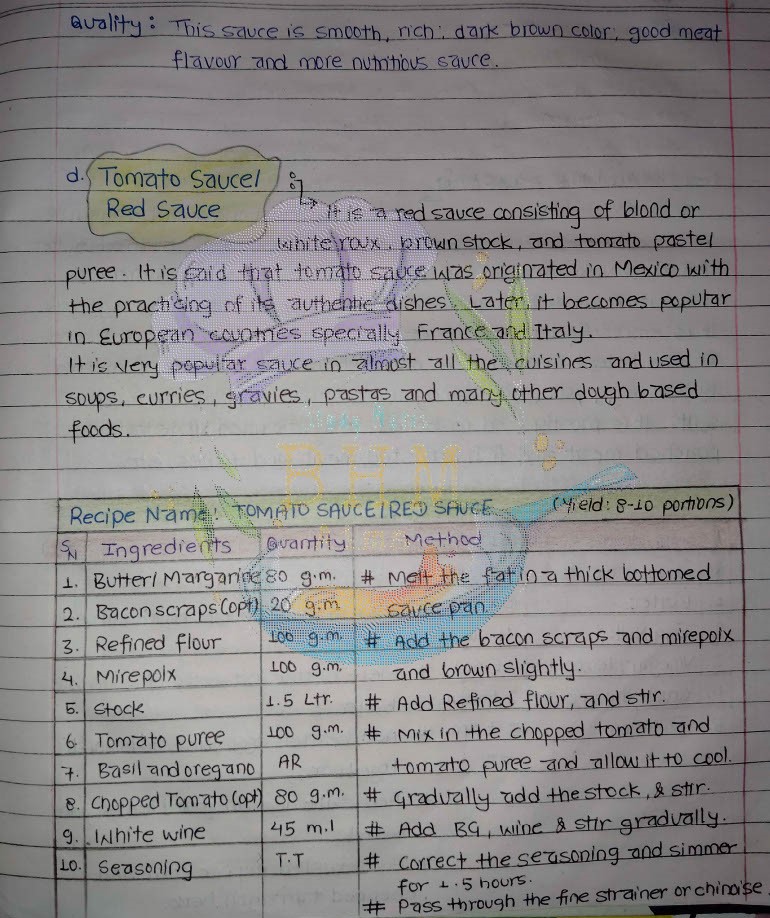 Quality: This sauce is smooth, rich, dark brown color, good meat
flavour and more nutritious sauce.
d. Tomato Sauce/
Red Sauce
It is a red sauce consisting of blond or
white roux, brown stock, and tomato paste/
puree. It is said that tomato sauce was originated in Mexico with
the practicing of its authentic dishes. Later, it becomes popular
in European countries specially France and Italy.
It is very popular sauce in almost all the cuisines and used in
soups, curries, gravies, pastas and many other dough based
foods.
BHM
Recipe Name: TOMATO SAUCE/RED SAUCE (Yield: 8-10 portions)
SN Ingredients Quantity Method
1. Butter/Margarine 80 g.m. # Melt the fat in a thick bottomed
2. Bacon scraps (opt) 20 g.m sauce pan
3. Refined flour 100 g.m. # Add the bacon scraps and mirepoix
4. Mirepoix 100 g.m. and brown slightly.
5. Stock 1.5 Ltr. # Add Refined flour, and stir.
6. Tomato puree 100 g.m. # Mix in the chopped tomato and
7. Basil and oregano AR tomato puree and allow it to cool.
8. Chopped Tomato (opt) 80 g.m. # Gradually add the stock, & stir.
9. White wine 45 m.l # Add BG, wine & stir gradually.
10. Seasoning T.T # Correct the seasoning and simmer
for 1.5 hours.
# Pass through the fine strainer or chinoise.